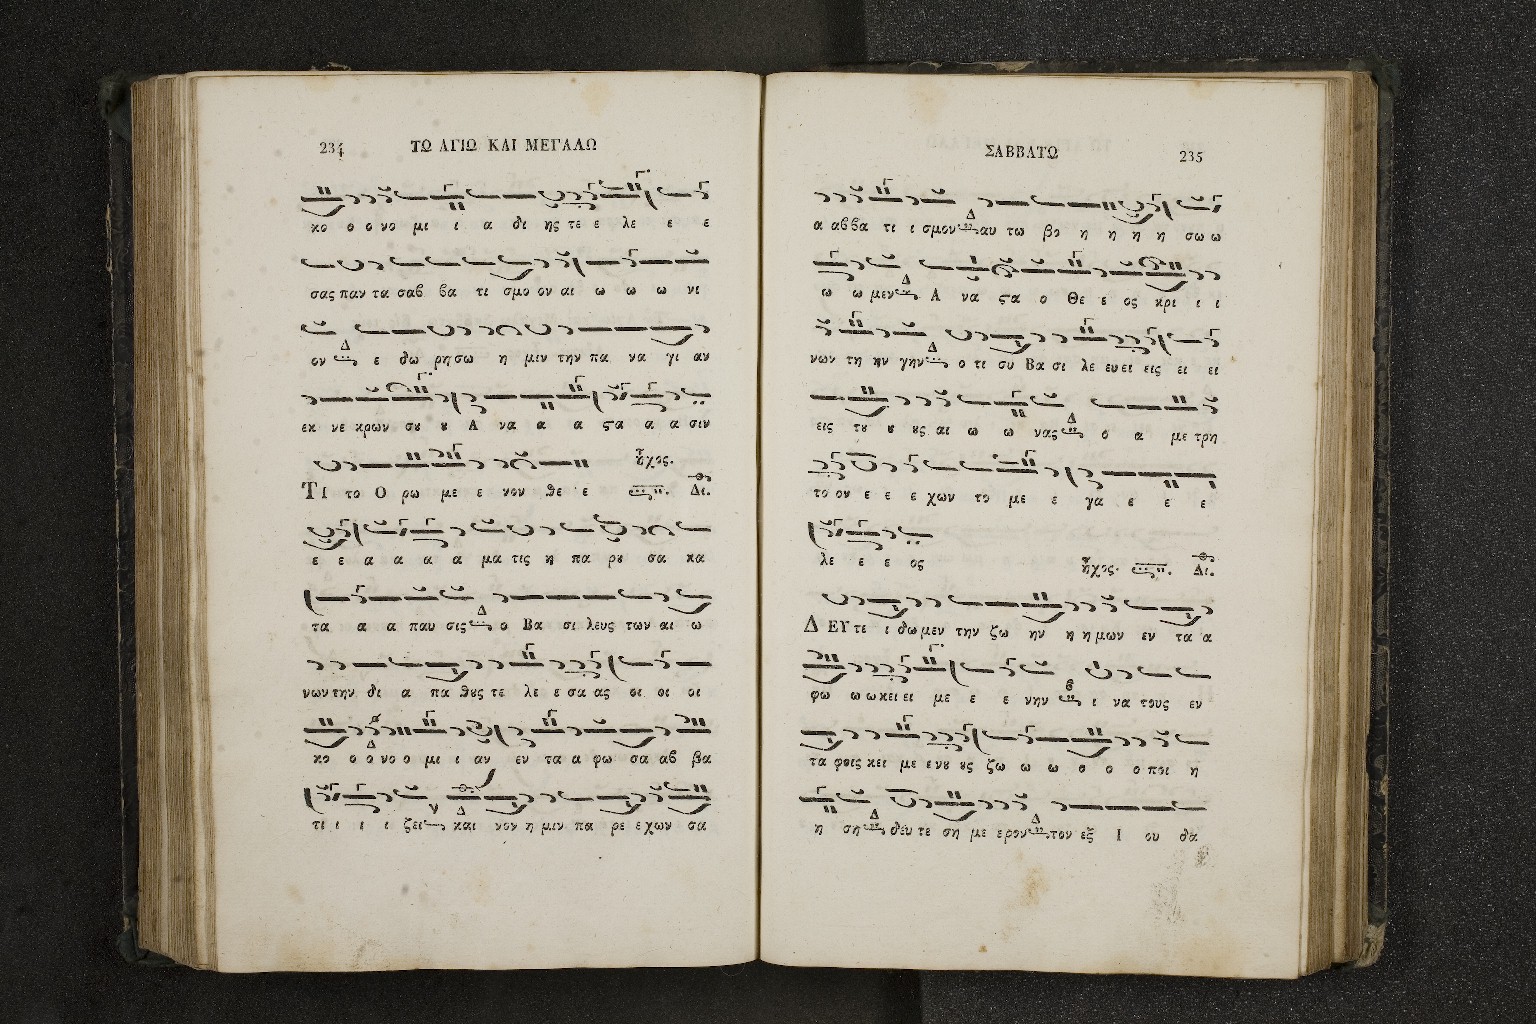 234 ΤΩ ΑΓΙΩ ΚΑΙ ΜΕΓΑΛΩ
κο ο ο νο μι ι α δι ης τε ε λε ε ε
σας παν τα σαβ βα τι σμο ον αι ω ω ω νι
ον ε δω ρη σω η μιν την πα να γι αν
εκ νε κρων σου ου Α να α α στα α α σιν
ηχος.
Τι το Ο ρω με ε νον θε ε Δι.
ε ε α α α α μα τις η πα ρου σα κα
τα α α παυ σις ο Βα σι λευς των αι ω
νων την δι α πα θους τε λε ε σα ας οι οι οι
κο ο ο νο ο μι ι αν εν τα α φω σα αβ βα
τι ι ι ι ζει και νον η μιν πα ρε ε χων σα
ΣΑΒΒΑΤΩ 235
α αβ βα τι ι σμον αυ τω βο η η η η σω ω
ω ω μεν Α να στα ο Θε ε ος κρι ι ι
νων τη ην γην ο τι συ Βα σι λε ευ ει εις ει ει
εις του ου ους αι ω ω νας ο α με τρη
το ον ε ε ε χων το με ε γα ε ε ε
λε ε ε ος ηχος. Δι.
ΔΕΥ τε ι δω μεν την ζω ην η η μων εν τα α
φω ω ω κει ει με ε ε νην ι να τους εν
τα φοις κει με ε νου ους ζω ω ω ο ο ο ποι η
η ση δευ τε ση με ε ρον τον εξ Ι ου δα